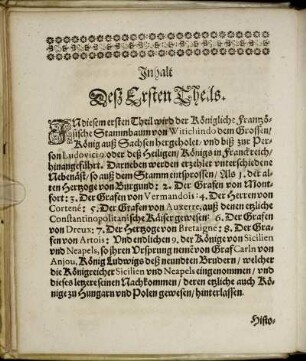 Inhalt
Deß Ersten Theils.
IN diesem ersten Theil wird der Königliche Frantzö-
sische Stammbaum von Witichindo dem Grossen/
König auß Sachsen hergeholet/ und biß zur Per-
son Ludovici 9 oder deß Heiligen/ Königs in Franckreich/
hinangeführt. Darneben werden erzehlet unterschiedene
Nebenäst/ so auß dem Stamm entsprossen/ Als 1. der al-
ten Hertzoge von Burgund: 2. Der Grafen von Mont-
fort: 3. Der Grafen von Vermandois: 4. Der Herren von
Cortené: 5. Der Grafen von Auxerre, auß denen etzliche
Constantinopolitanische Käiser gewesen: 6. Der Grafen
von Dreux: 7. Der Hertzoge von Bretaigne: 8. Der Gra-
fen von Artois: Und endlichen 9. der Könige von Sicilien
und Neapels, so ihren Ursprung neme von Graf Carln von
Anjou, König Ludwigs deß neundten Brudern/ welcher
die Königreicher Sicilien und Neapels eingenommen/ und
dieses letzere seinen Nachkommen/ deren etzliche auch Kö-
nige zu Hungarn und Polen gewesen/ hinterlassen.
Histo-